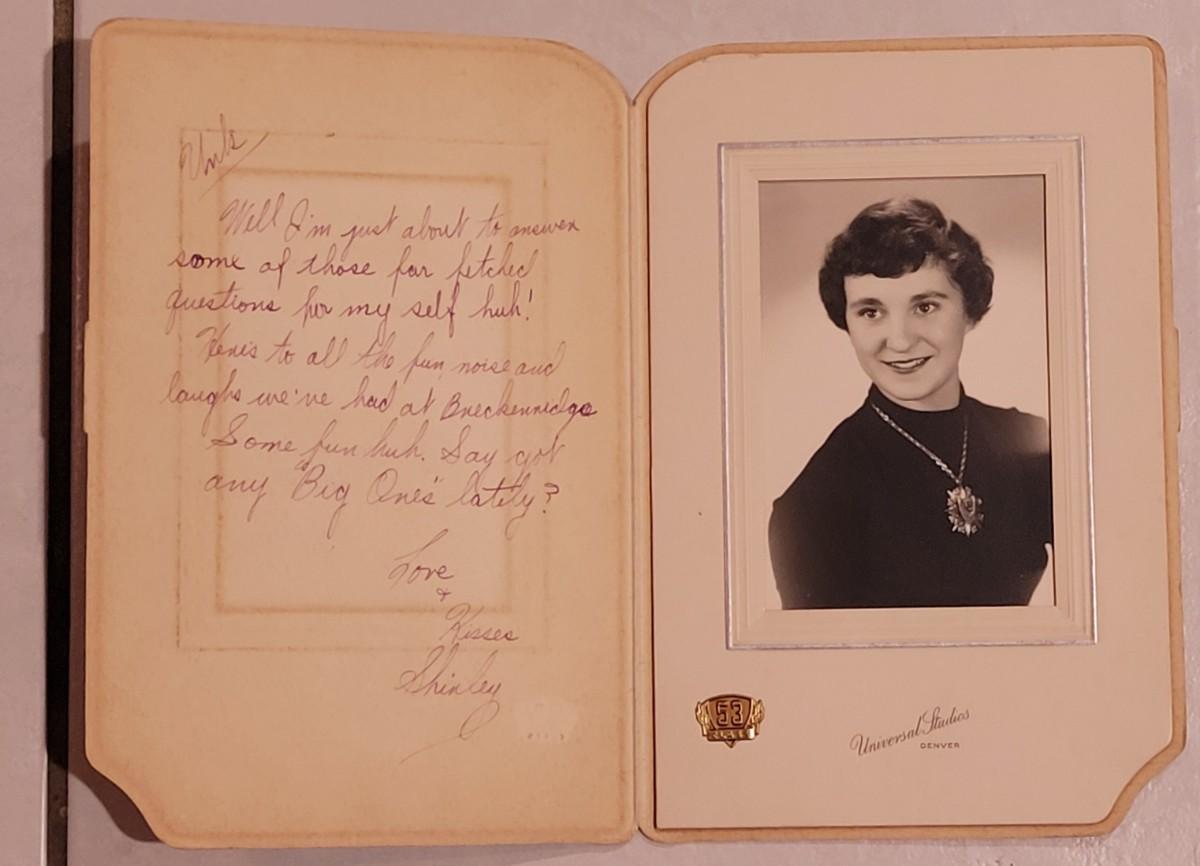 Unk
Well I'm just about to answer
some of those far fetched
questions for my self huh!
Here's to all the fun, noise and
laughs we've had at Breckenridge
Some fun huh. Say got
any "Big Ones" lately?
Love
&
Kisses
Shirley
53
CLASS
Universal Studios
DENVER